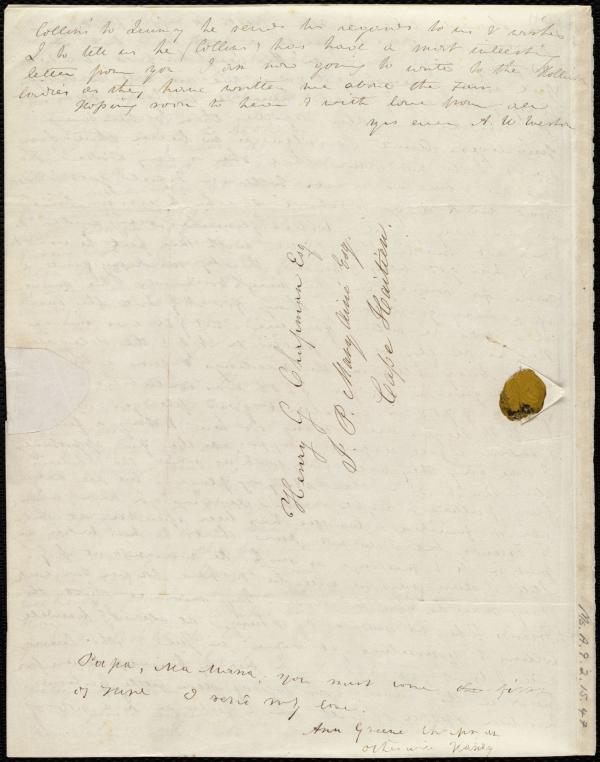 Collins to Quincy he sends his regards to us & wishes
I to tell us he (Collins) has had a most interesting
letter from you I am now going to write to the
ladies as they have written me about the Fair
Hoping soon to hear I with love from all
yrs ever A. W Weston
Henry G Chapman Esq
S. P. Mary Aine Esq.
Cape Haitien.
Papa, Ma Mama, you must come first
of June I send my love.
Ann Greene Chapman
otherwise Nanny
Ms. A. 9. 2. 15. 47